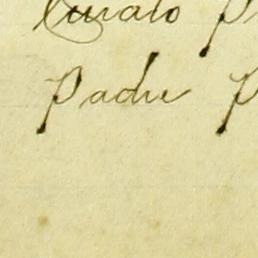 Curato P
Padre P